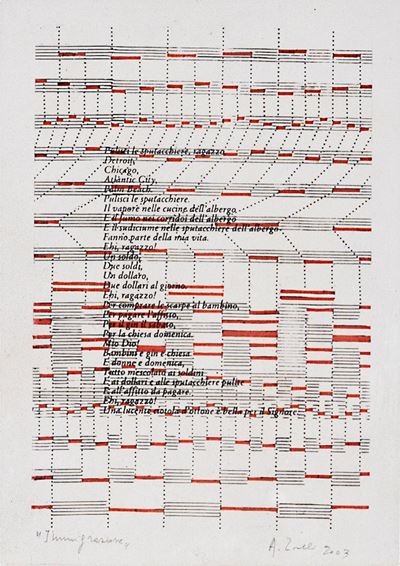 Pulisci le sputacchiere, ragazzo.
Detroit,
Chicago,
Atlantic City,
Palm Beach.
Pulisci le sputacchiere.
Il vapore nelle cucine dell'albergo,
E il fumo nei corridoi dell'albergo
E il sudiciume nelle sputacchiere dell'albergo
Fanno parte della mia vita.
Ehi, ragazzo!
Un soldo,
Due soldi,
Un dollaro,
Due dollari al giorno.
Ehi, ragazzo!
Per comprare le scarpe al bambino,
Per pagare l'affitto,
Per il gin il sabato,
Per la chiesa domenica.
Mio Dio!
Bambini e gin e chiesa
E donne e domenica,
Tutto mescolato ai soldini
E ai dollari e alle sputacchiere pulite
E all'affitto da pagare.
Ehi, ragazzo!
Una lucente ciotola d'ottone è bella per il Signore.
"Immigrazione"
A. 2003